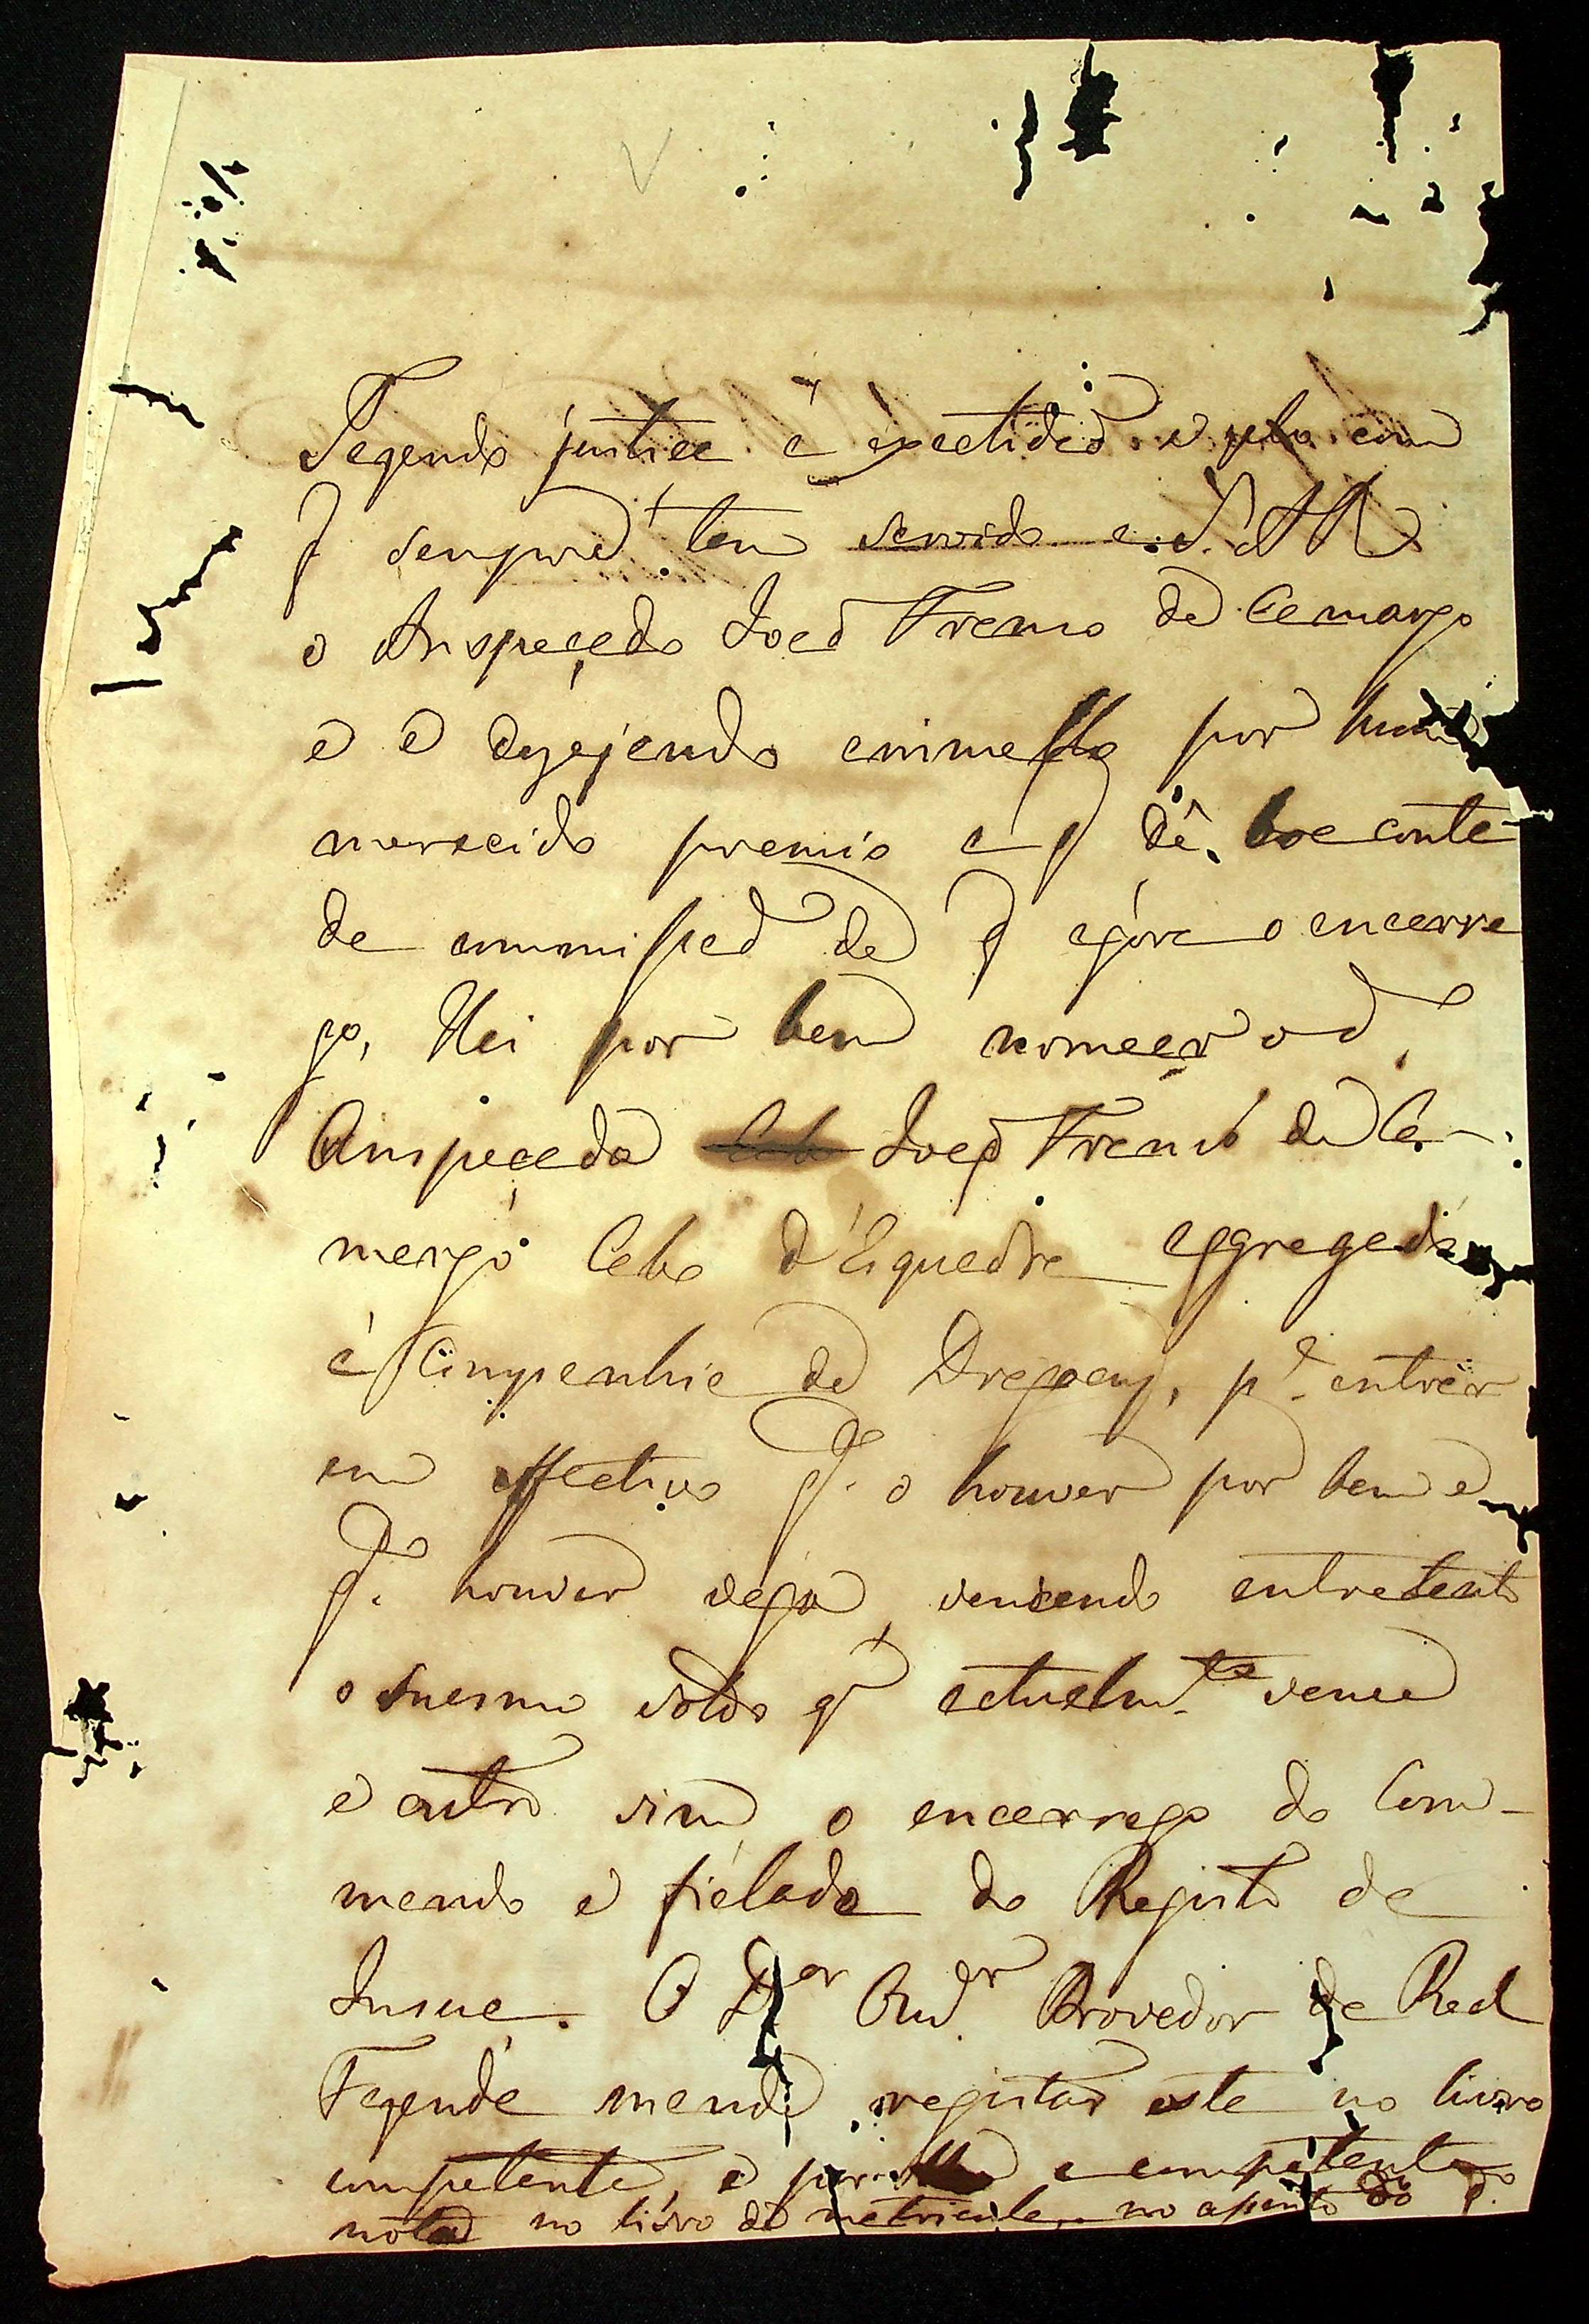 Fazendo justiça á exactidaõ e zelo com
q sempre tem servido a S. A. R.
o Anspeçada Joaõ Franco de Camargo
e e dezejando animallo por hum
merecido premio a q dê boa conta
da commissaõ de q agora o encarre
go, Hei por bem nomear o d.º
Anspeçada Joaõ Franco de Ca-
margo Cabo d'Esquadra aggregado
á Companhia de Dragoens, p.ª entrar
em effectivo q.do o houver por bem e
q.do houver vaga, vencendo entretanto
o mesmo soldo q' actualm.te vence
e outro sim o encarrego do Com-
mando e fielado do Registo de
Insua. O D.or Ouv.dor Provedor da Real
Fazenda mande registar este no livro
competente, e por a competente
nota no livro da matricula, no assento do d.º